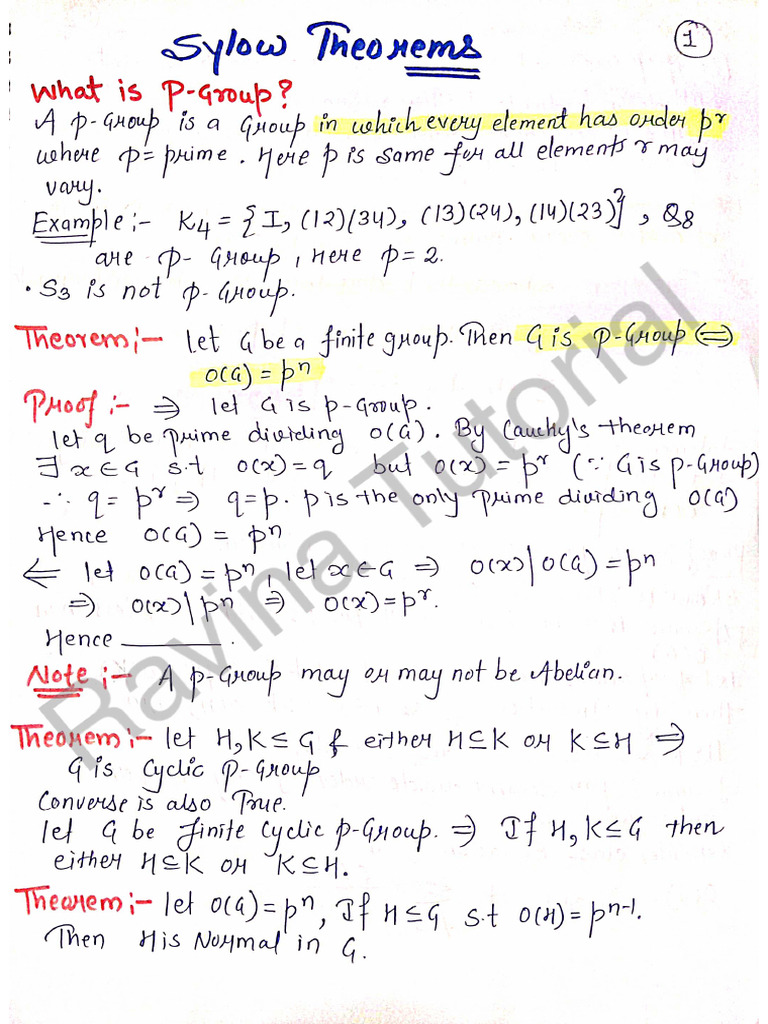 Sylow Theorems
1
What is P-Group?
A p-Group is a Group in which every element has order pʳ
where p=prime. Here p is same for all elements r may
vary.
Example:- K₄ = {I, (12)(34), (13)(24), (14)(23)}, Q8
are p-Group, Here p=2.
· S3 is not p-Group.
Theorem:- Let G be a finite group. Then G is P-Group ⟺
O(G) = pⁿ
Proof:- ⇒ let G is p-Group.
let q be prime dividing O(G). By Cauchy's theorem
∃ x∈G s.t O(x)=q but O(x)=pʳ (∵ G is p-Group)
∴ q=pʳ ⇒ q=p. p is the only prime dividing O(G)
Hence O(G) = pⁿ
⇐ let O(G)=pⁿ, let x∈G ⇒ O(x)|O(G)=pⁿ
⇒ O(x)|pⁿ ⇒ O(x)=pʳ.
Hence ______.
Note:- A p-Group may or may not be Abelian.
Theorem:- let H,K≤G & either H⊆K or K⊆H ⇒
G is Cyclic p-Group
Converse is also True.
let G be finite cyclic p-Group. ⇒ If H,K≤G then
either H⊆K or K⊆H.
Theorem:- let O(G)=pⁿ, If H≤G s.t O(H)=pⁿ⁻¹.
Then H is Normal in G.
Ravina Tutorial